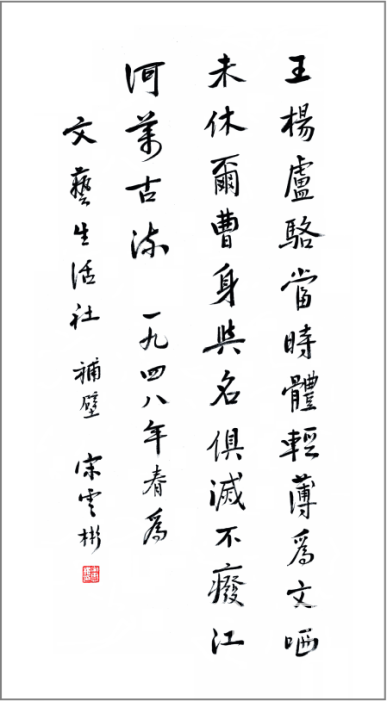 王楊盧駱當時體輕薄為文哂
未休爾曹身與名俱滅不癈江
河萬古流 一九四八年春為
文藝生活社 補壁 宋雲彬